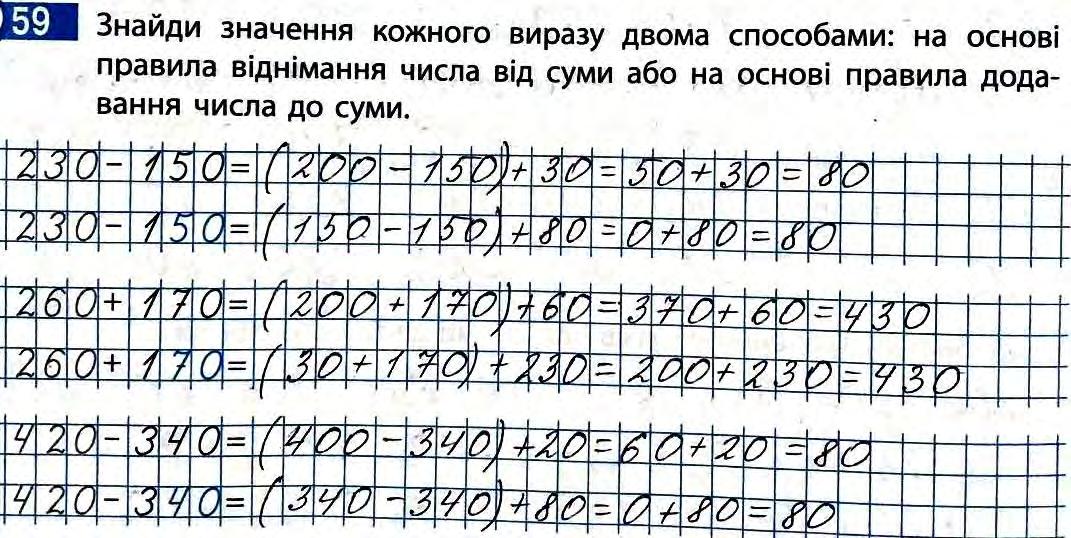 59 Знайди значення кожного виразу двома способами: на основі
правила віднімання числа від суми або на основі правила дода-
вання числа до суми.
230-150=(200-150)+30=50+30=80
230-150=(150-150)+80=0+80=80
260+170=(200+170)+60=370+60=430
260+170=(30+170)+230=200+230=430
420-340=(400-340)+20=60+20=80
420-340=(340-340)+80=0+80=80